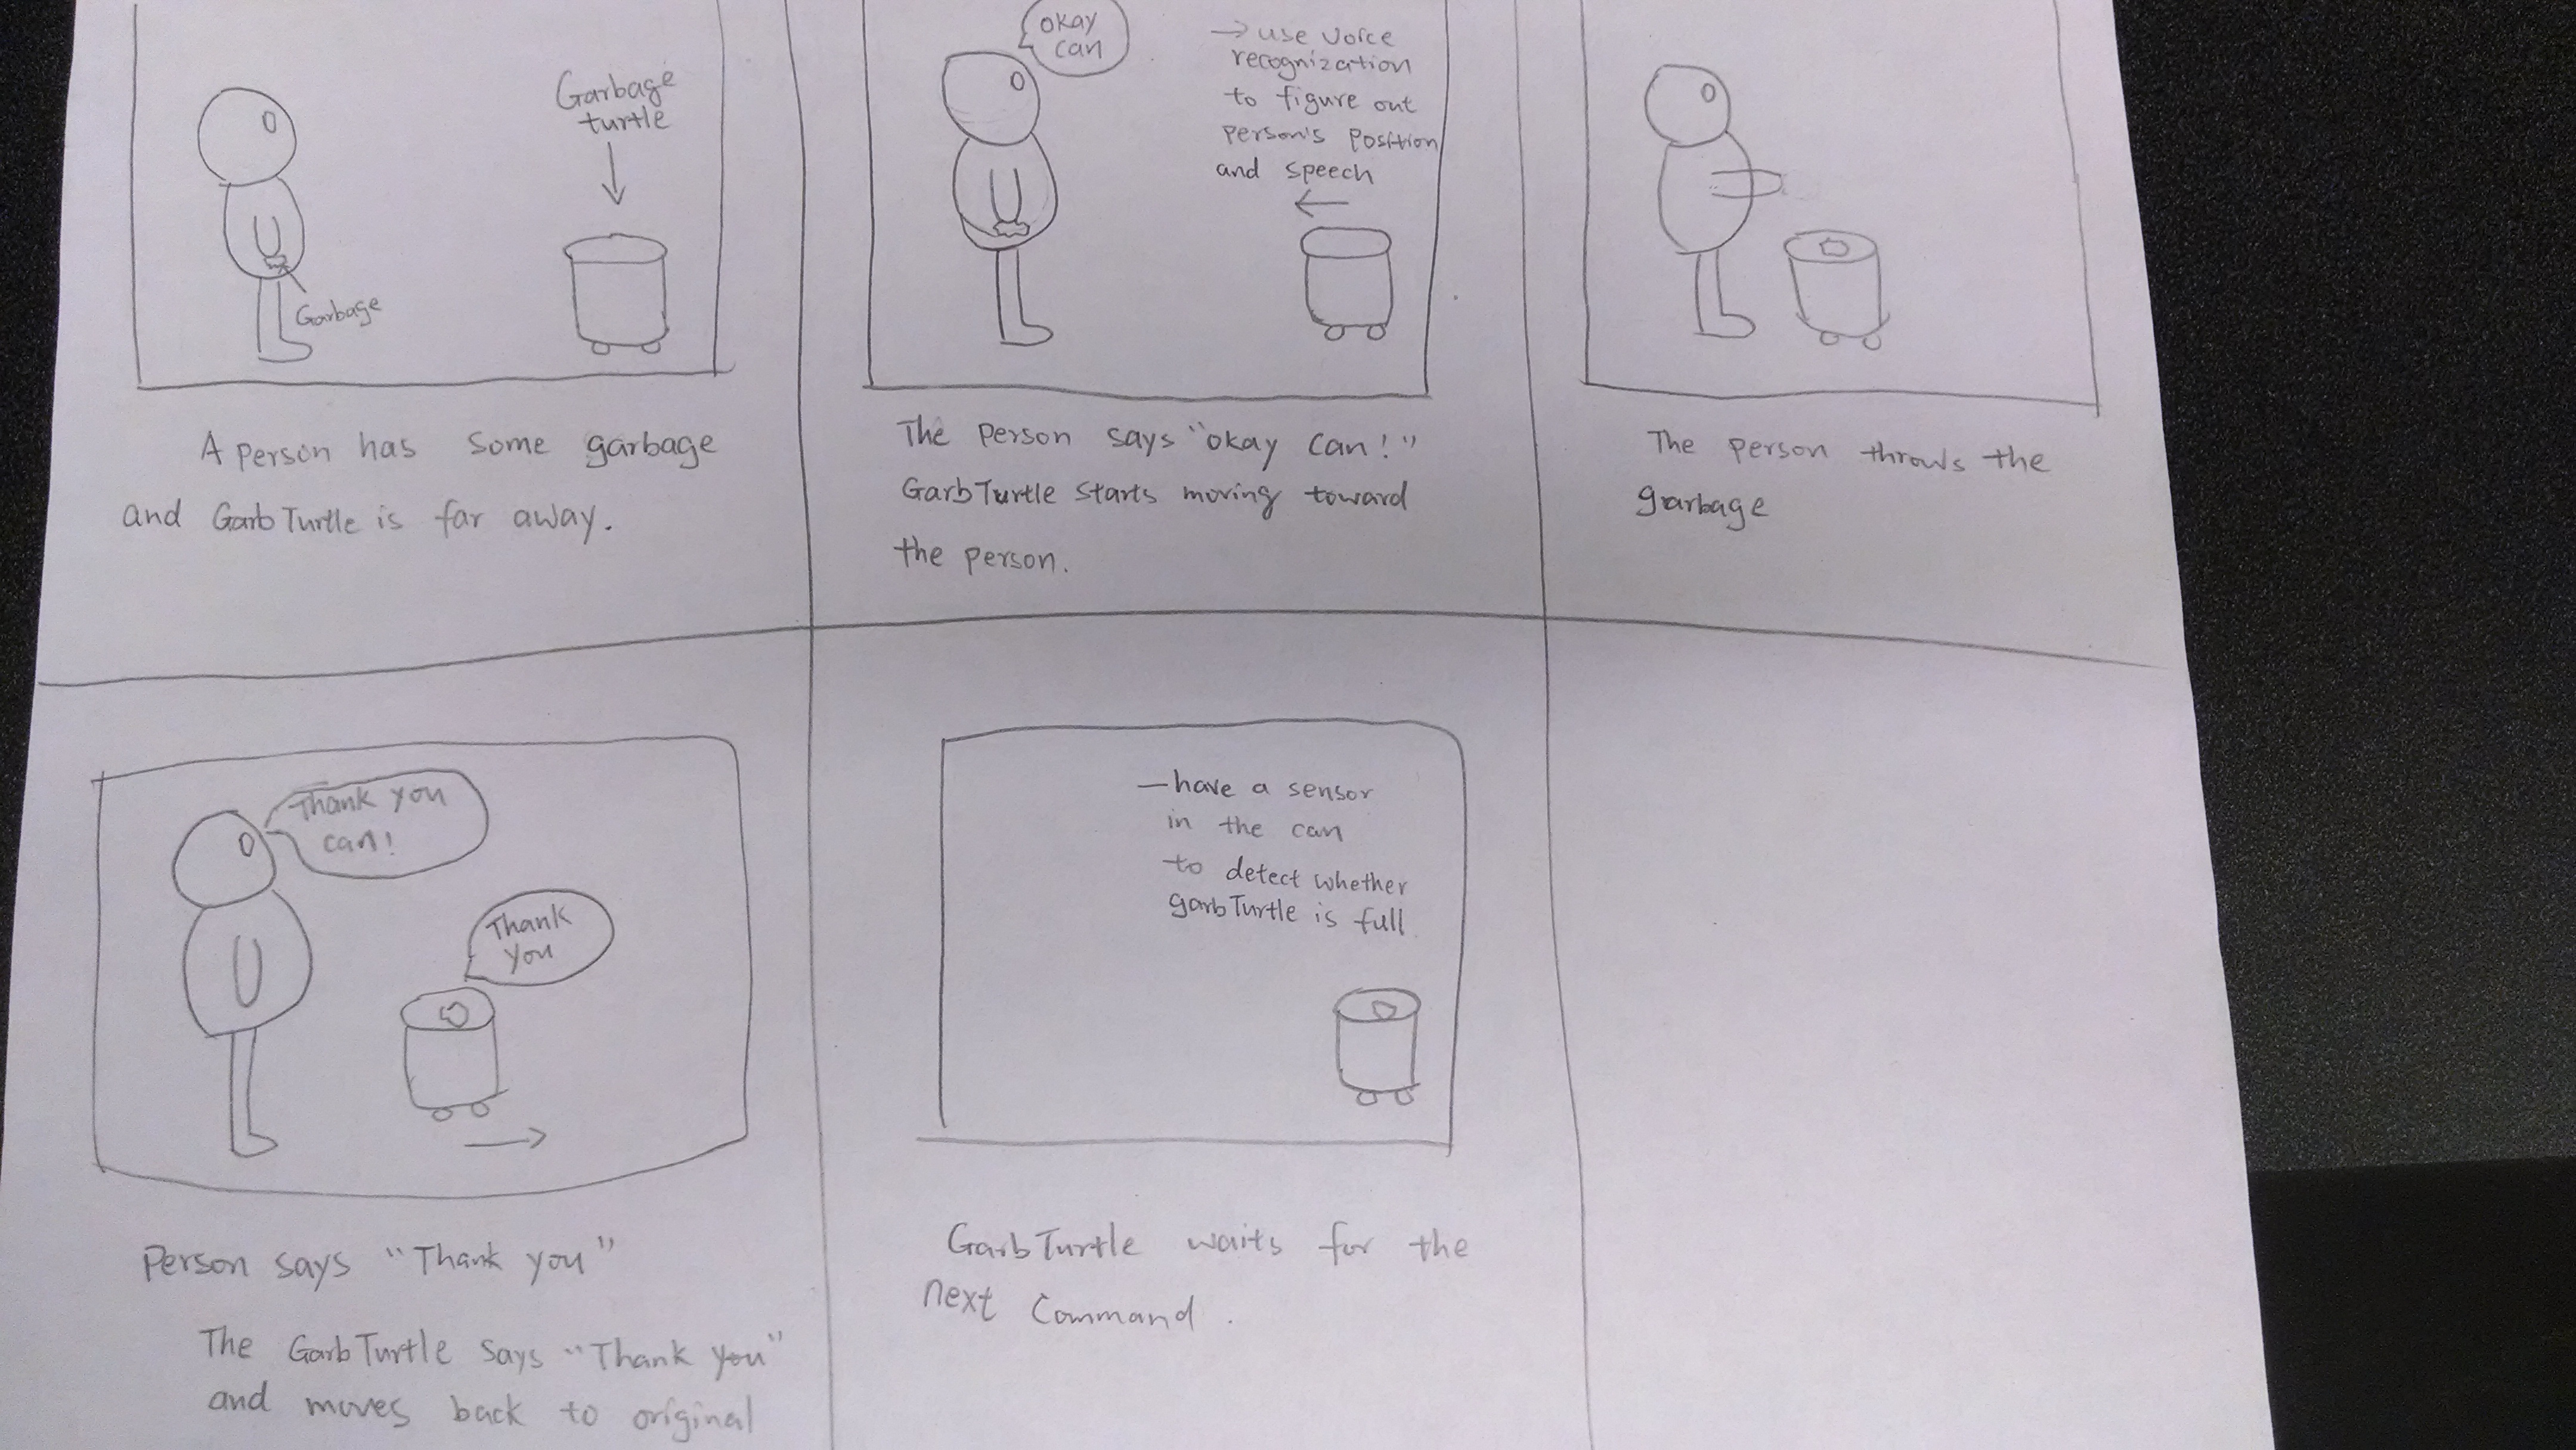 Garbage
turtle
Garbage
A person has some garbage
and GarbTurtle is far away.
okay
can
→ use voice
recognization
to figure out
person's position
and speech
The person says "okay can!"
GarbTurtle starts moving toward
the person.
The person throws the
garbage
Thank you
can!
Thank
you
Person says "Thank you"
The GarbTurtle says "Thank you"
and moves back to original
- have a sensor
in the can
to detect whether
garbTurtle is full.
GarbTurtle waits for the
next command.